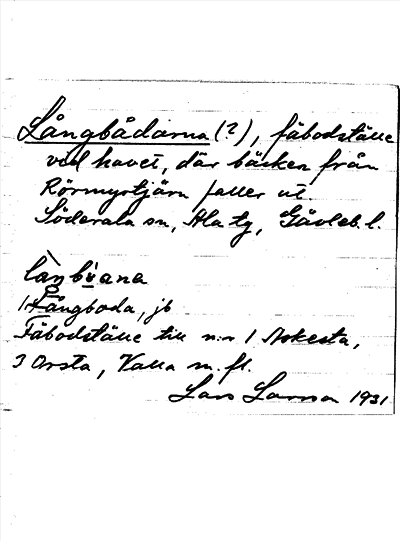 Långbådarna (?), fäbodställe
vid havet, där bäcken från
Rörmyrtjärn faller ut.
Söderala sn, Ala tg, Gävleb. l.
1. Långboda, jb
Fäbodställe till n:r 1 Askesta,
3 Orsta, Valla m. fl.
Lars Larson 1931